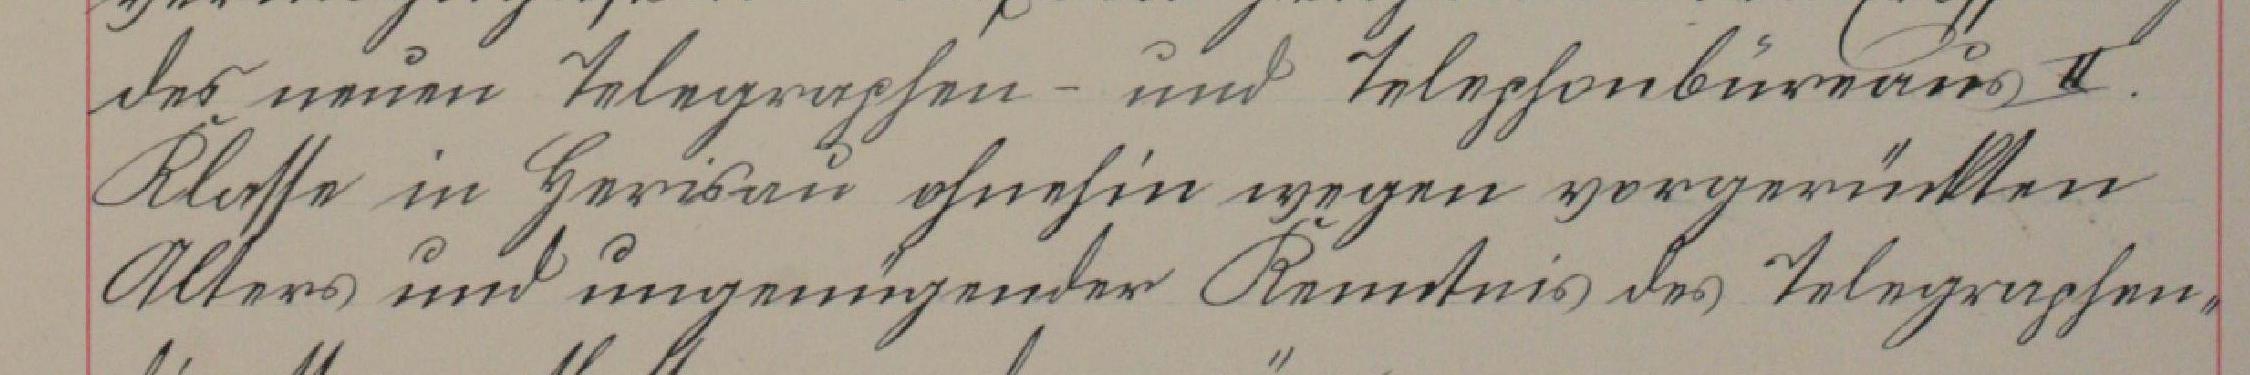 des neuen Telegraphen- und Telephonbüreaus II.
Klasse in Herisau ohnehin wegen vorgerückten
Alters und ungenügender Kenntnis des Telegraphen-